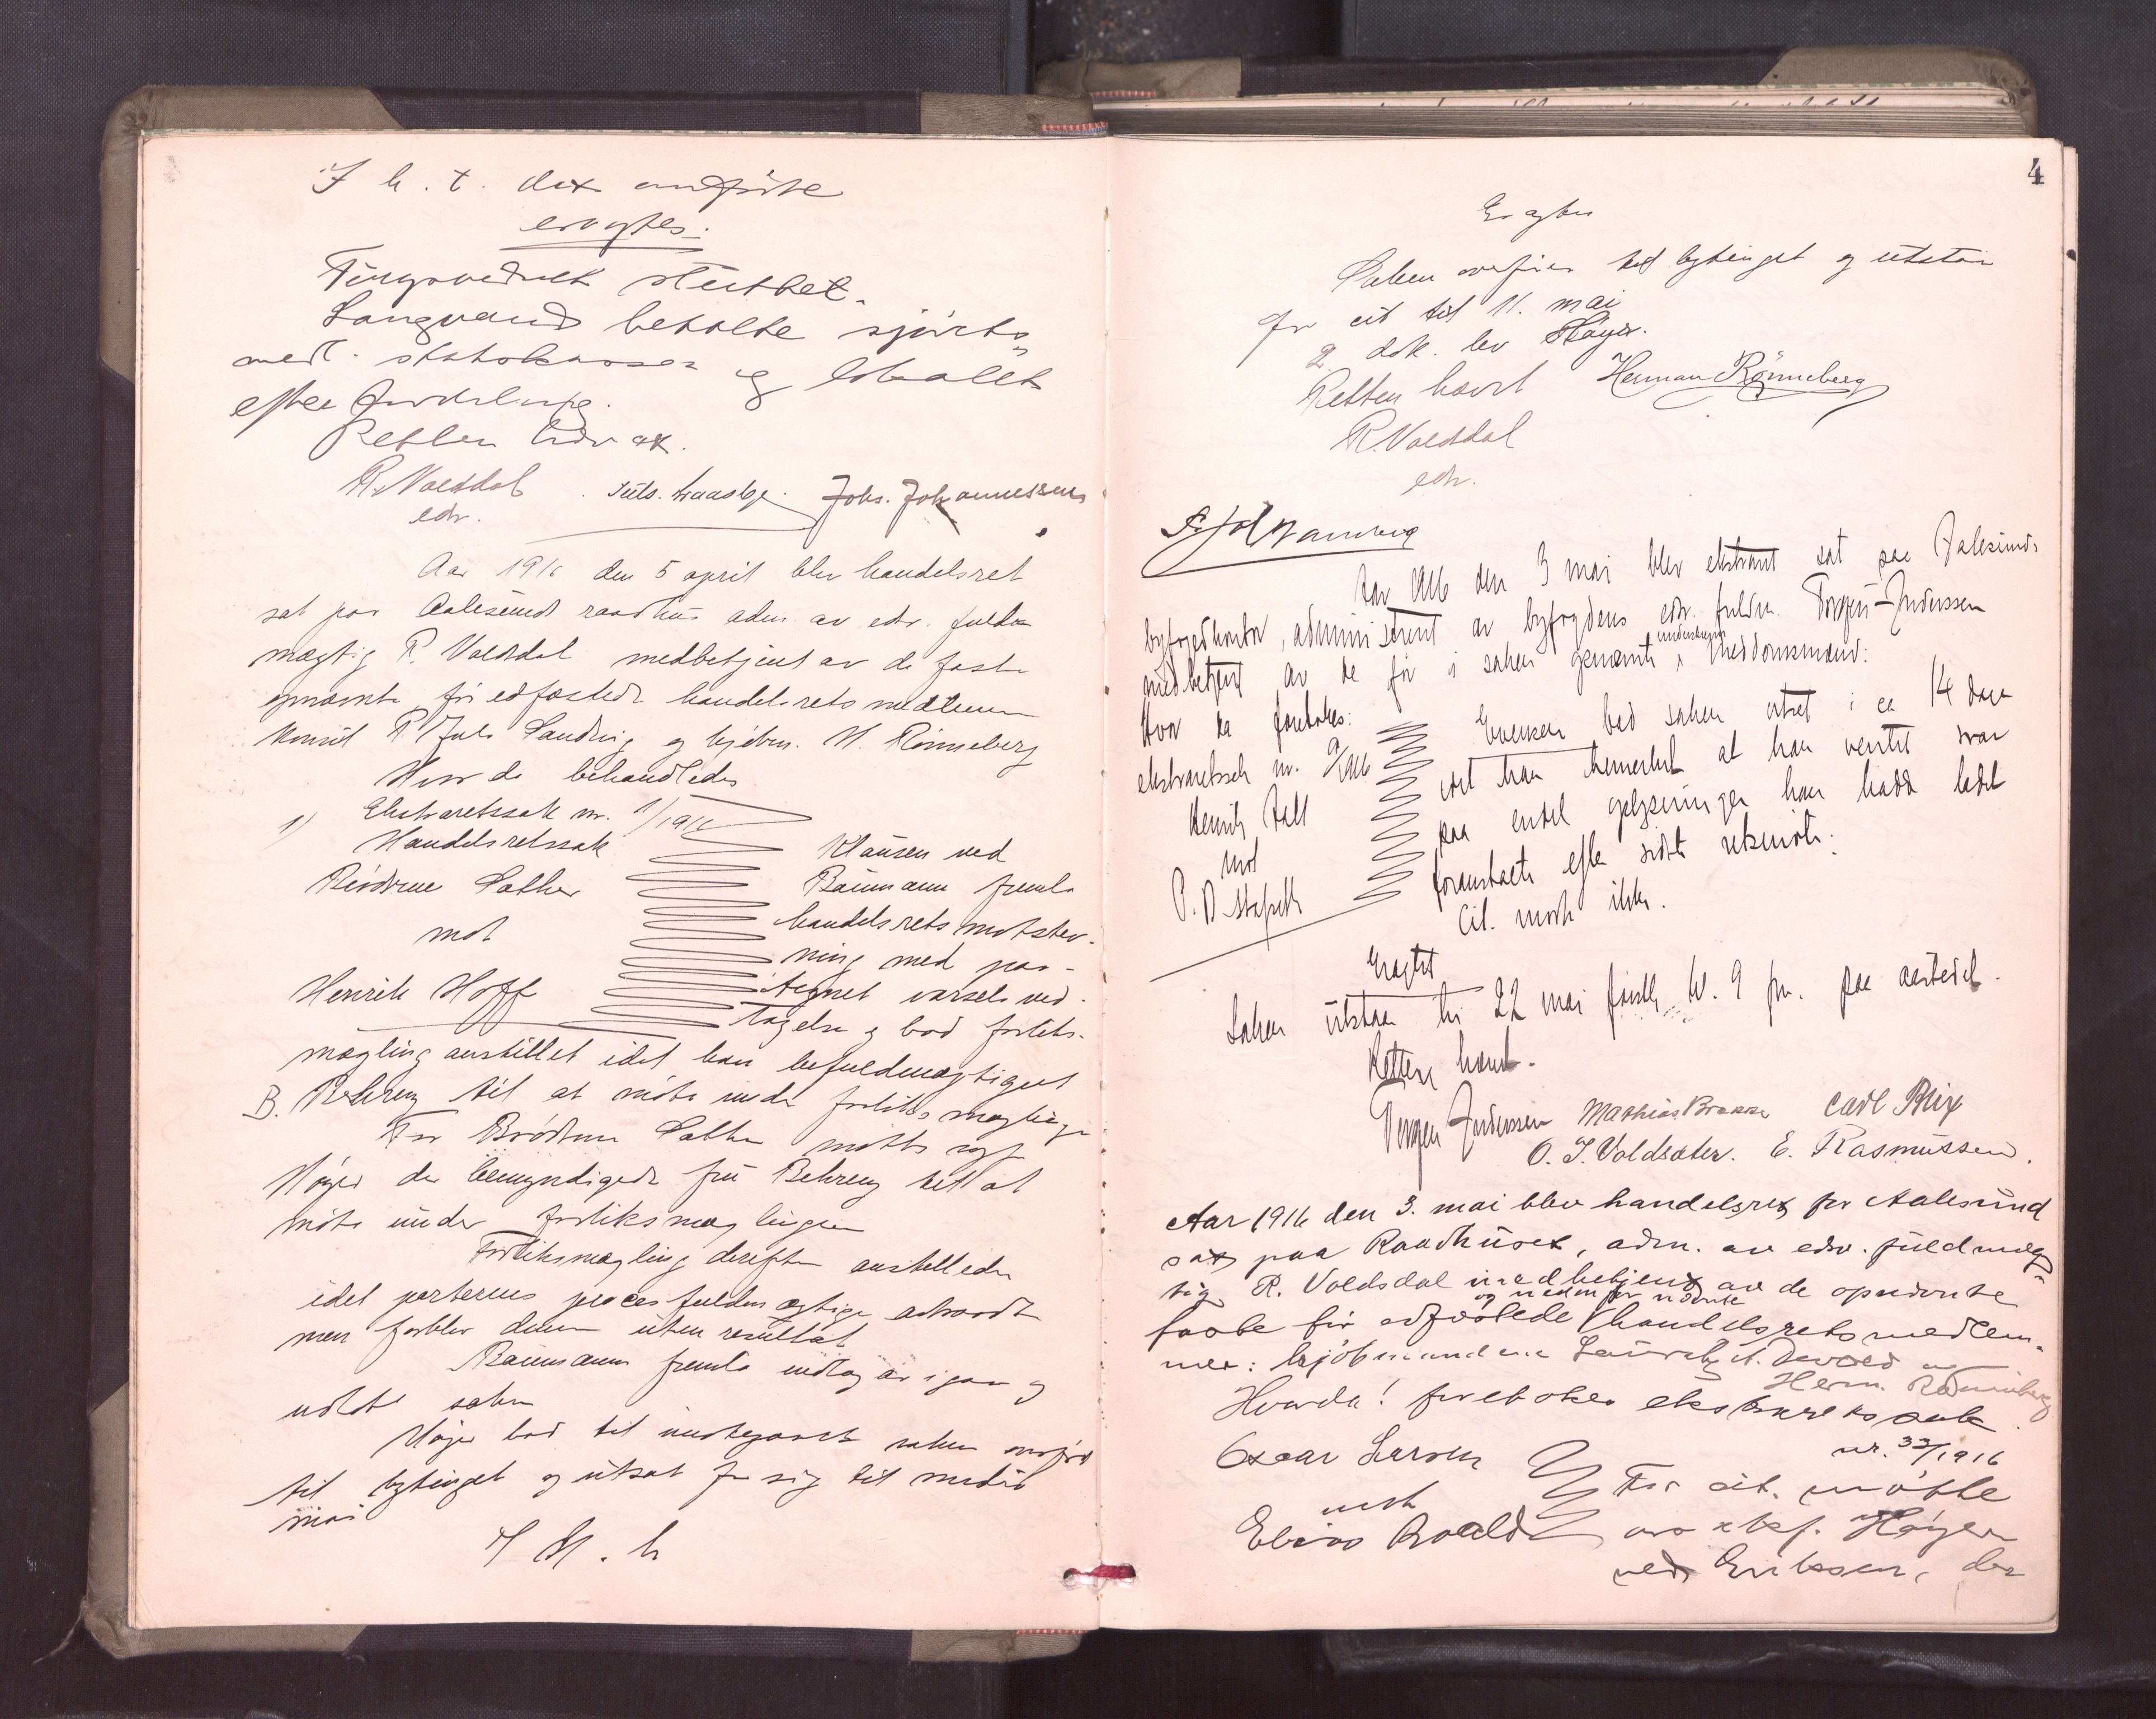 I h. t. det anførte
eragtes:
Tingsvidnet sluttet.
betalte
med statskassen og lokalet
efter fordeling.
Retten hævet.
R. Voldsdal Johs. Johannessen
edv.
Aar 1916 den 5 april blev handelsret
sat paa Aalesunds raadhus adm av edv. fuldm
mægtig R. Voldsdal medbetjent av de faste
opnævnte før edfæstede handelsrets medlemmer
konsul og kjøbm. H. Rønneberg
Hvor da behandledes
1) Ekstraretssak nr. 1/1916
Handelsretssak
Brødrene Sather
mot
Henrik Hoff
Klausen ved
Baumann freml.
handelsrets motstev-
ning med paa-
tegnet varsels ved-
tagelse og bad forliks-
mægling anstillet idet han befuldmægtiget
B. Behrens til at møte under forliksmæglingen
For Brødrene Sather møtte sagf
Høyer der bemyndigede fru Behrens til at
møte under forliksmæglingen
Forliksmægling derefter anstilledes
idet parternes procesfuldmægtige
men forblev denne uten resultat
Baumann freml. indlæg av igaar og
saken
Høyer bad til imøtegaaelse saken overført
til bytinget og utsat for sig til medio
mai
4
Eragtes
Saken overføres til bytinget og utstaar
for cit til 11. mai
2 dok. lev Høyer.
Retten hævet Herman Rønneberg
R. Voldsdal
edv.
Aar 1916 den 3 mai blev ekstraret sat paa Aalesunds
byfogedkontor, administrert av byfogdens edv. fuldm. Torgeir Anderssen
medbetjent av de før i saken genævnte, underskrevne meddomsmænd:
Hvor da foretokes:
ekstraretssak nr. 9/1916
Henrik
mot
P. A. Stafseth
bad saken utsat i ca 14 dage
idet han bemerket at han ventet svar
paa endel oplysninger han hadde latt
foranstalte efter sidste retsmøte.
Cit. møtte ikke.
Eragtet
Saken utstaar til 22 mai førstk. kl. 9 fm. paa aastedet.
Retten hævet.
Torgeir Anderssen Mathias Brakke Carl Blix
O. J. Voldsæter. E. Rasmussen.
Aar 1916 den 3. mai blev handelsret for Aalesund
sat paa Raadhuset, adm. av edv. fuldmæg-
tig R. Voldsdal medbetjent av de opnævnte
og nedenfor nævnte
faste før edfæstede handelsretsmedlem-
mer: kjøbmændene Devold og
Herm. Rønneberg
Hvorda! foretokes ekstraretssak
nr. 33/1916
Oscar Larsen
mot
Elias Roald
For cit. møtte
o.r.sakf. Høyer
ved Eriksen, der